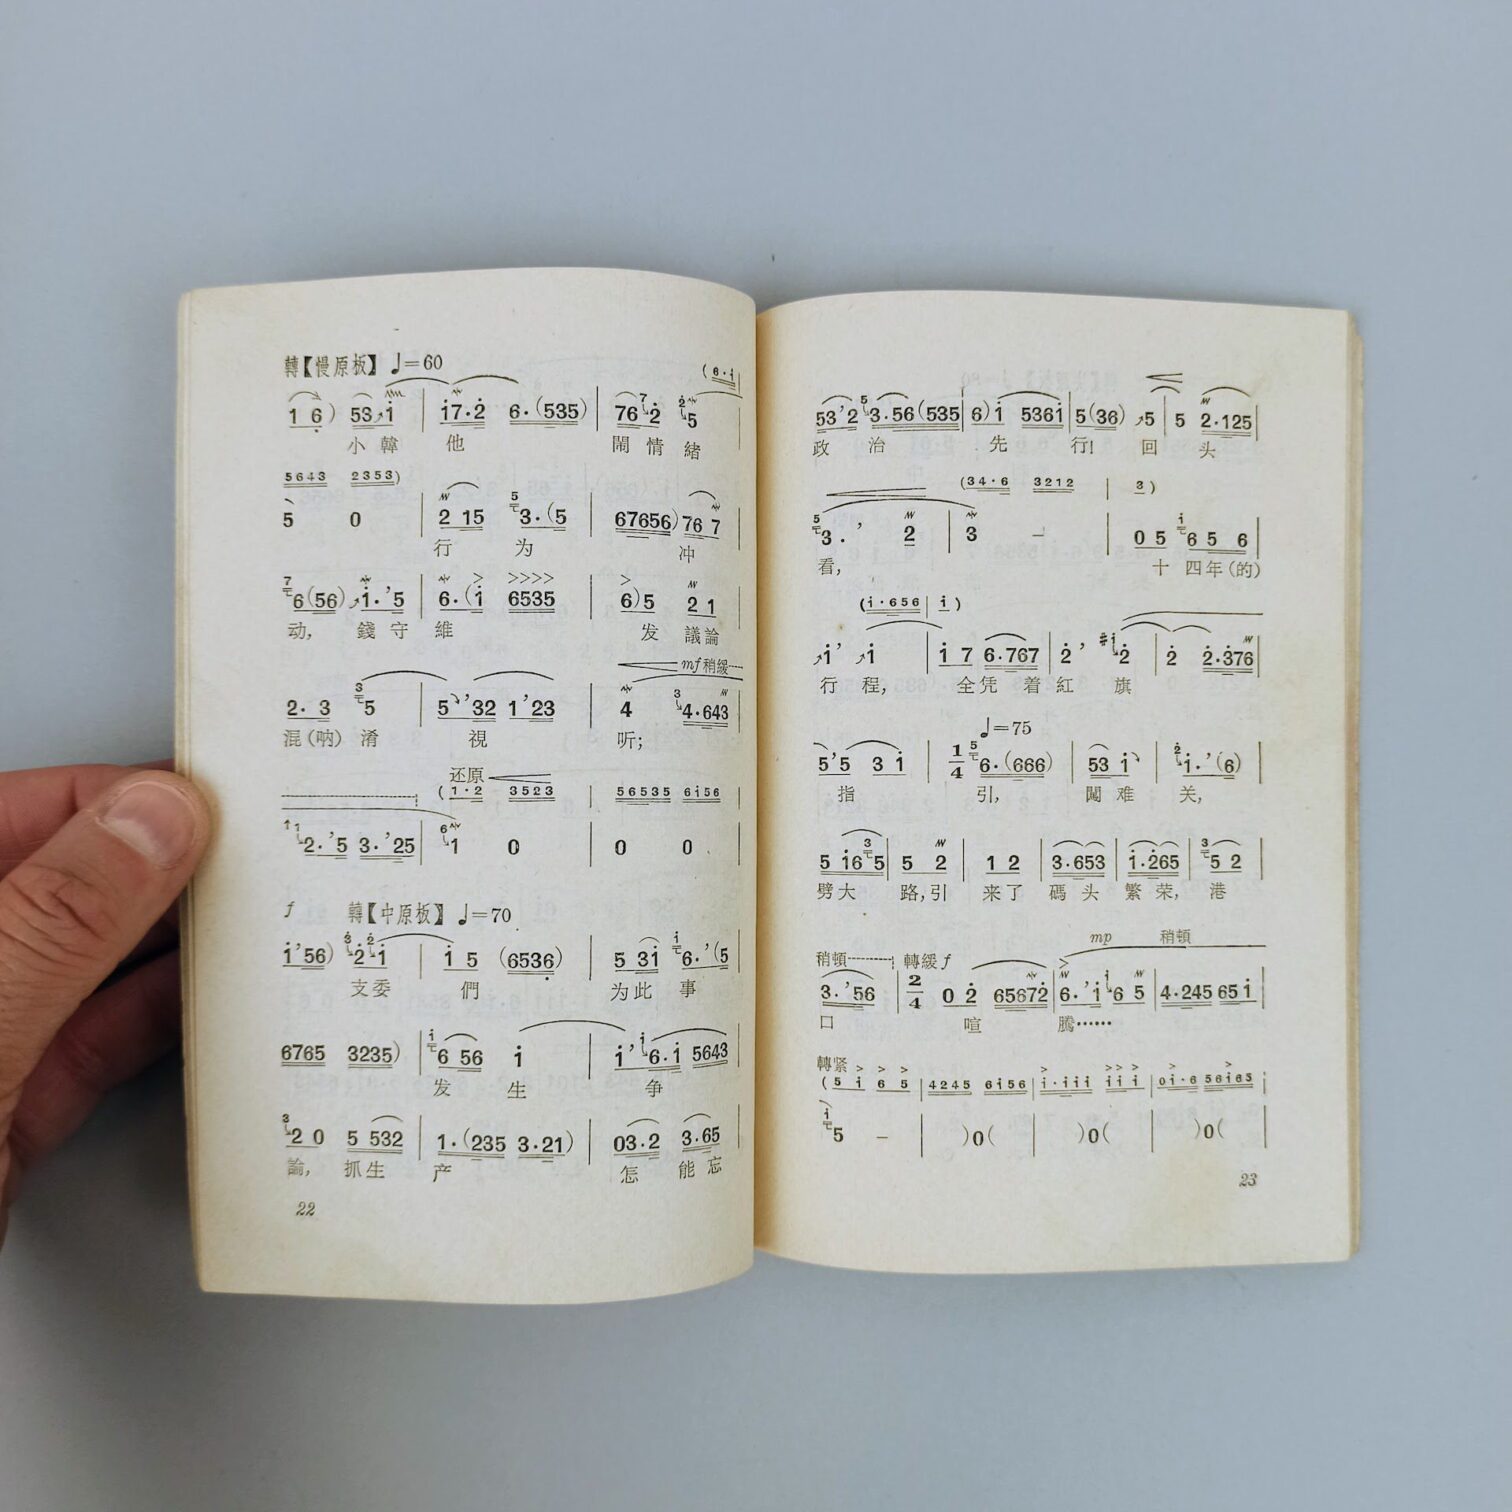 轉【慢原板】 ♩=60
(6·i
1 6) 53 i | i7·2 6·(535) | 76 2 5
小韓 他 鬧情緒
5643 2353)
5 0 | 2 15 3·(5 | 67656) 76 7
行 为 冲
6(56) i·'5 | 6·(i 6535 | 6)5 2 1
动, 錢守 維 发 議論
mf 稍緩
2· 3 5 | 5'32 1'23 | 4 4·643
混(呐)淆 視 听;
还原
(1·2 3523 | 56535 6i56
2·'5 3·'25 | 1 0 | 0 0
f 轉【中原板】 ♩=70
i'56) 2 i | i 5 (6536) | 5 3i 6·'(5
支委 們 为此 事
6765 3235) | 6 56 i | i' 6·i 5643
发 生 争
2 0 5 532 | 1·(235 3·21) | 03·2 3·65
論, 抓生 产 怎 能忘
22
53'2 3·56(535 | 6)i 536i | 5(36) 5 | 5 2·125
政 治 先 行! 回 头
(34·6 3212 | 3)
3·' 2 | 3 – | 0 5 6 5 6
看, 十 四年(的)
(i·656 | i)
i' i | i 7 6·767 | 2' 2 | 2 2·376
行 程, 全凭 着紅 旗
♩=75
5'5 3 i | 1/4 6·(666) | 53 i | i·'(6)
指 引, 闖难 关,
5 i6 5 | 5 2 | 1 2 | 3·653 | i·265 | 5 2
劈大 路,引 来了 碼头 繁荣, 港
mp 稍頓
稍頓 轉緩 f
3·'56 | 2/4 0 2 65672 | 6·'i 6 5 | 4·245 65i
口 喧 騰……
轉紧
(5 i 6 5 | 4245 6i56 | i·iii iii | 0i·6 56i65
5 – | )0( | )0( | )0(
23